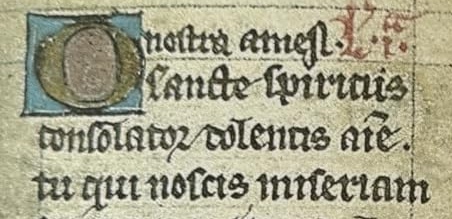 nostra amen.
O sancte spiritus
consolator dolentis aīe.
tu qui noscis miseriam